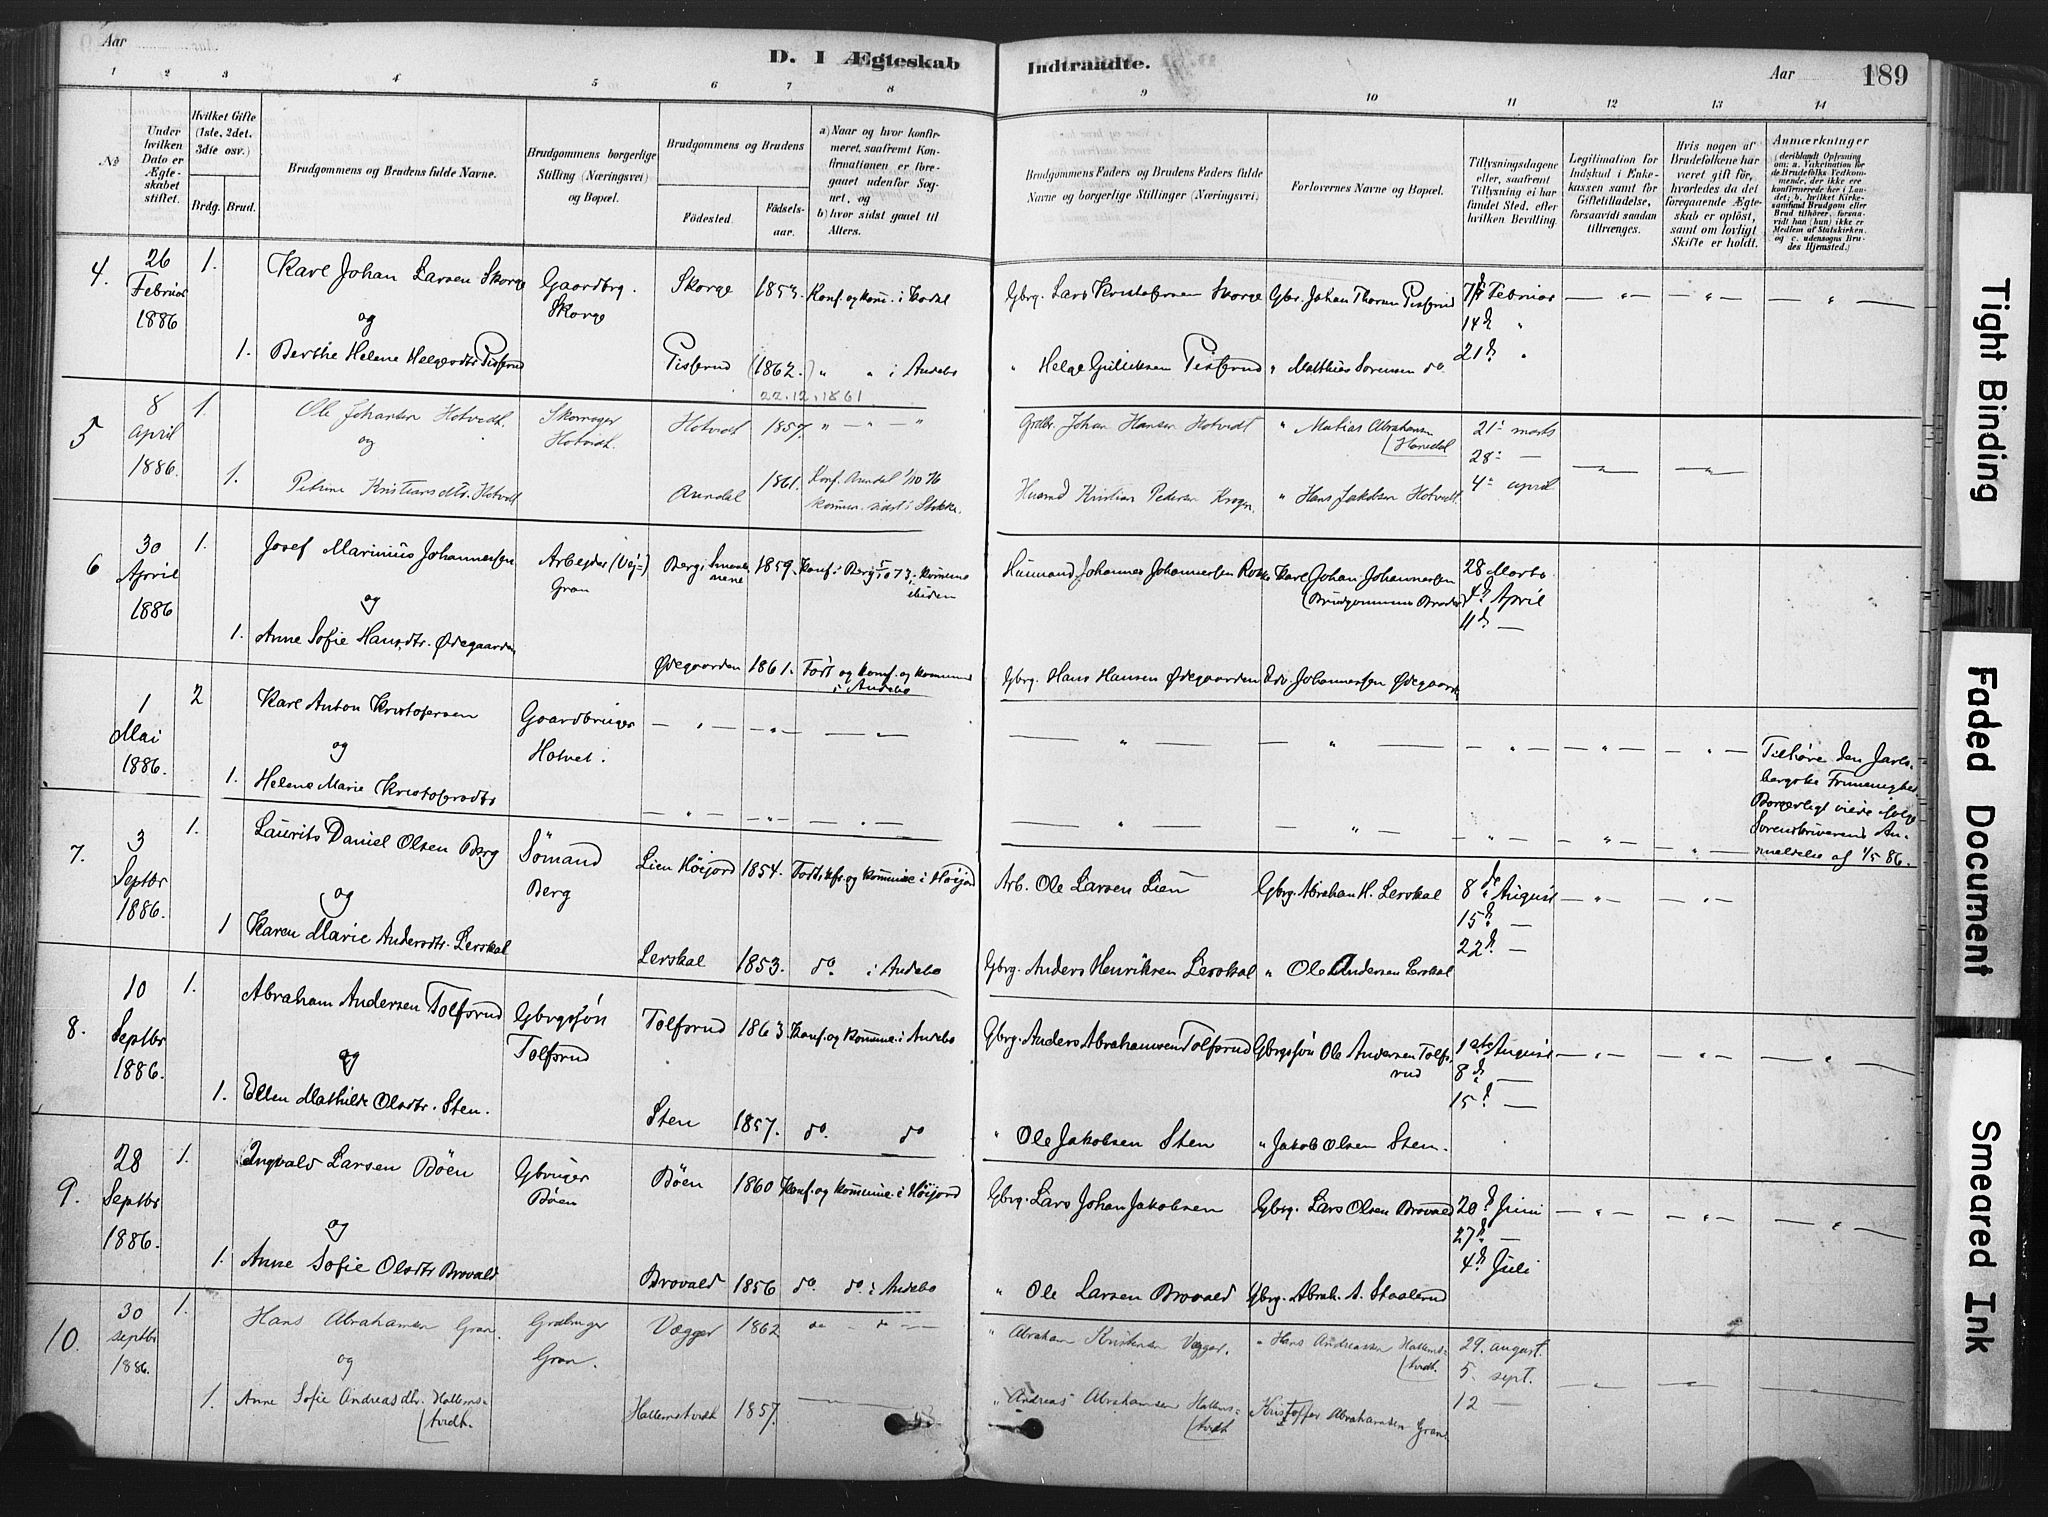 Aar
D. I Ægteskab Indtraadte.
Aar
189
1 2 3 4 5 6 7 8 9 10 11 12 13 14
No
Under hvilken Dato er Ægteskabet stiftet.
Hvilket Gifte (1ste, 2det, 3die osv.)
Brdg. Brud.
Brudgommens og Brudens fulde Navne.
Brudgommens borgerlige Stilling (Næringsvei) og Bopæl.
Brudgommens og Brudens
Fødested. Fødselsaar.
a) Naar og hvor konfirmeret, saafremt Konfirmationen er foregaaet udenfor Sognet, og
b) hvor sidst gaaet til Alters.
Brudgommens Faders og Brudens Faders fulde Navne og borgerlige Stillinger (Næringsvei)
Forlovernes Navne og Bopæl.
Tillysningsdagene eller, saafremt Tillysning ei har fundet Sted, efter hvilken Bevilling.
Legitimation for Indskud i Enkekassen samt for Giftetilladelse, forsaavidt saadan tiltrænges.
Hvis nogen af Brudefolkene har været gift før, hvorledes da det foregaaende Ægteskab er opløst, samt om lovligt Skifte er holdt.
Anmærkninger
4. 26 Februar 1886 1. Karl Johan Larsen Skorge Gaardbrg. Skorge Skorge 1853. Konf. og kom. i Kodal Gbrg. Lars Kristofersen Skorge Gbr. Johan Thoresen Tisferud 7de Februar — " — — " — — " —
og 14de "
1. Berthe Helene Helgesdtr Tisferud Tisferud (1862.) " " i Andebo " Helge Guliksen Tisferud " Matthias Sørensen do 21de "
22.12.1861
5 8 April 1886. 1. Ole Johansen Hotvedt. Skomager Hotvidt. Hotvidt 1857. " — " — " Grdbr. Johan Hansen Hotvidt " Matias Abrahamsen 21' marts
og 28- —
1. Petrine Kristiansdtr. Hotvedt Arendal 1861. Konf. Arendal 1/10 76 Husmd Kristian Pedersen " Hans Jakobsen Hotvidt. 4- april
kommun. sidst i Stokke.
6 30 April 1886 1. Josef Marinius Johannessen Arbeyder (Vej=) Gran Berg i Smaalenene 1859. Konf. i Berg 5/10 73. kommun. ibiden Husmand Johannes Johannessen Karl Johan Johannessen (Brudgommens Broder) 28 Marts
og 4de April
11de —
1. Anne Sofie Hansdtr. Ødegaarden Ødegaarden 1861. Født og konf. og kommun i Andebo Gbrg. Hans Hansen Ødegaarden Johannessen Ødegaarden
1 Mai 1886. 2 Karl Anton Kristofersen Gaardbruger Hotvet. — " — — " — — " —
og
1. Helene Marie Kristofersdtr
Tilhøre den Jarlsbergske Frimenighed
Borgerligt viede ifølge
Sorenskriverens Anmeldelse af 1/5 86.
7. 3 Septbr 1886. 1. Laurits Daniel Olsen Berg Sømand Berg Lien Høijord 1854. Født kfr. og kommun. i Høijord Arb. Ole Larsen Lien Gbrg. Abraham H. Lerskal 8de August — " — — " —
og 15de —
1 Karen Marie Andersdtr. Lerskal Lerskal 1853. do i Andebo Gbrg. Anders Henriksen Lerskal " Ole Andersen Lerskal 22de —
8. 10 Septbr 1886. 1. Abraham Andersen Tolfsrud Gbrgssøn Tolfsrud Tolfsrud 1863. Konf. og kommun. i Andebo Gbrg. Anders Abrahamsen Tolfsrud Gbrgssøn Ole Andersen Tolfsrud 1ste August — " — — " — — " —
og 8de —
1. Ellen Mathilde Olsdtr. Sten. Sten 1857. do. do " Ole Jakobsen Sten " Jakob Olsen Sten. 15de —
9. 28 Septbr 1886. 1. Ingvald Larsen Böen Gbruger Böen Böen 1860 Konf. og kommun. i Höijord Gbrg. Lars Johan Jakobsen Gbrg. Lars Olsen Brovald 20de Juni — " — — " — — " —
og 27de —
1. Anne Sofie Olsdtr Brovald Brovald 1856 do. do. i Andebo " Ole Larsen Brovald Gbrg. Abrah. A. Staalerud 4de Juli
10. 30 septbr 1886. 1. Hans Abrahamsen Gran. Grdbruger Gran. Vægger 1862 do " do — " Abraham Kristensen Vægger. " Hans Andreassen Hallemstvidt. 29. august.
og 5. sept.
1. Anne Sofie Andreasdtr. Hallemstvidt. Hallemstvidt 1857. " Andreas Abrahamsen Hallemstvidt. Kristoffer Abrahamsen Gran. 12 —
Tight Binding
Faded Document
Smeared Ink